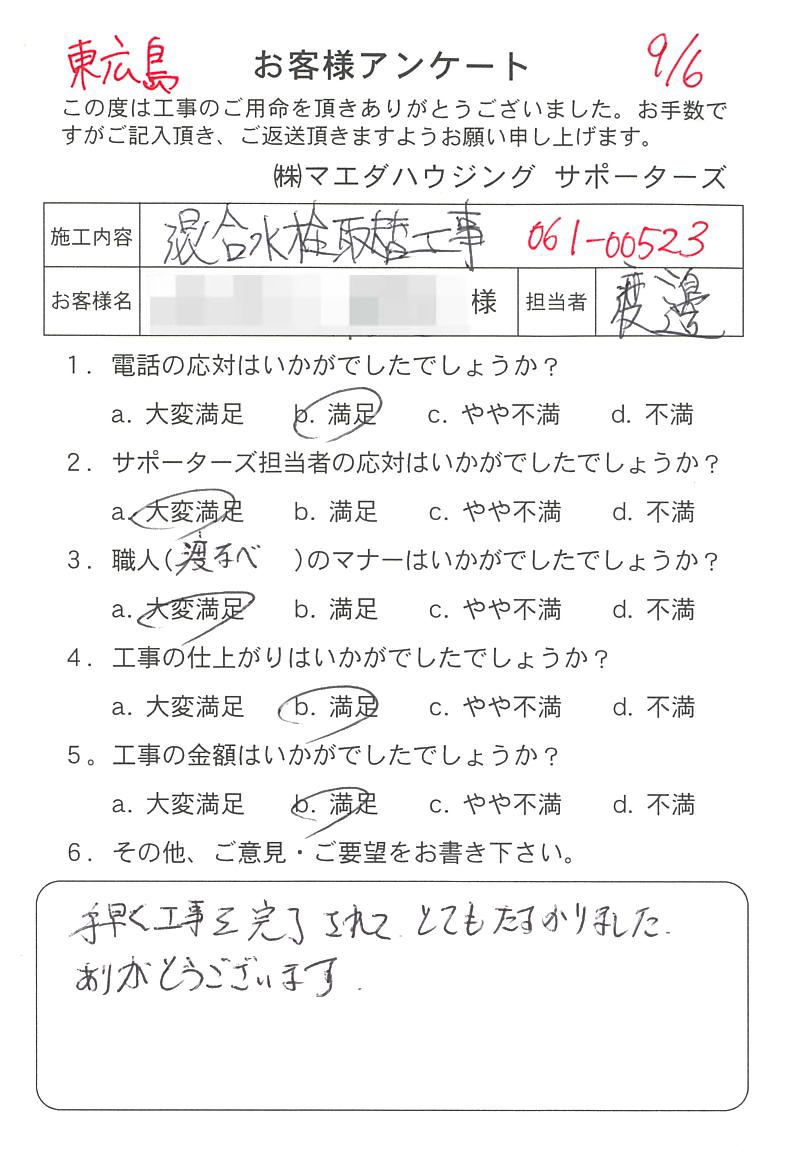 東広島 お客様アンケート 9/6
この度は工事のご用命を頂きありがとうございました。お手数で
すがご記入頂き、ご返送頂きますようお願い申し上げます。
㈱マエダハウジング サポーターズ
施工内容 混合水栓取替工事 061-00523
お客様名 様 担当者 渡邉
1. 電話の応対はいかがでしたでしょうか?
a. 大変満足 b. 満足 c. やや不満 d. 不満
2. サポーターズ担当者の応対はいかがでしたでしょうか?
a. 大変満足 b. 満足 c. やや不満 d. 不満
3. 職人(渡なべ )のマナーはいかがでしたでしょうか?
a. 大変満足 b. 満足 c. やや不満 d. 不満
4. 工事の仕上がりはいかがでしたでしょうか?
a. 大変満足 b. 満足 c. やや不満 d. 不満
5。工事の金額はいかがでしたでしょうか?
a. 大変満足 b. 満足 c. やや不満 d. 不満
6. その他、ご意見・ご要望をお書き下さい。
手早く工事を完了されて とてもたすかりました.
ありがとうございます.